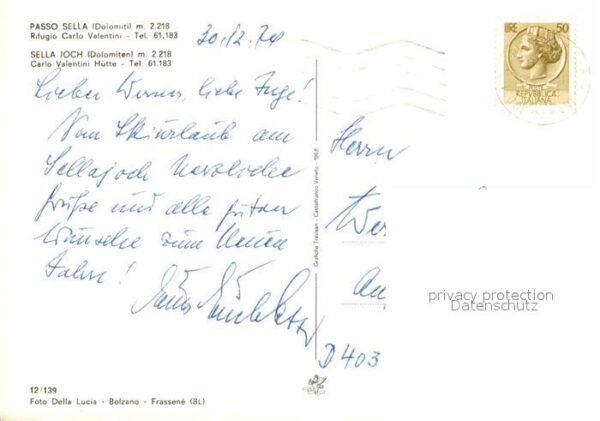 PASSO SELLA (Dolomiti) m. 2.218
Rifugio Carlo Valentini - Tel. 61.183
SELLA JOCH (Dolomiten) m. 2.218
Carlo Valentini Hütte - Tel. 61.183
30.12.74
Lieber Werner, liebe Inge!
Vom Skiurlaub am
Sellajoch herzliche
Grüße und alle guten
Wünsche zum Neuen
Jahre!
12/139
Foto Della Lucia - Bolzano - Frassenè (BL)
Grafiche Trevisan - Castelfranco Veneto - 1968
LIRE 50
REPUBBLICA
ITALIANA
Herrn
We
An
D 403
privacy protection
Datenschutz